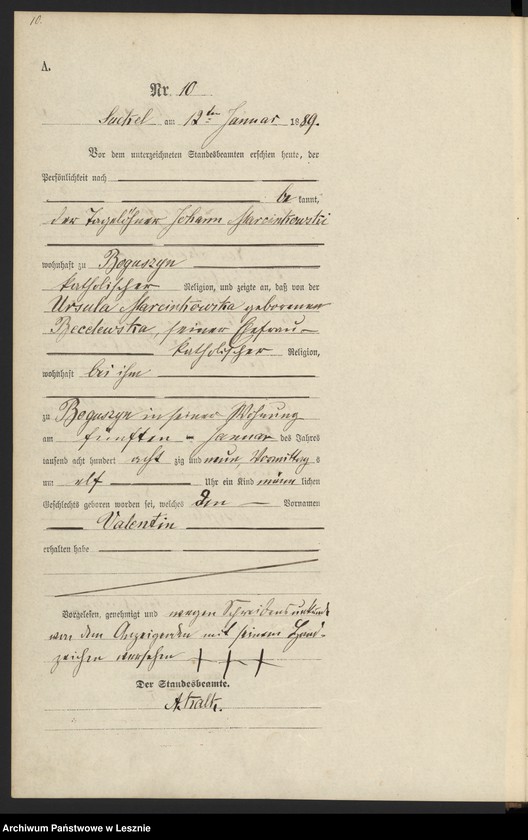 10.
A.
Nr. 10
am 12ten Januar 1889.
Vor dem unterzeichneten Standesbeamten erschien heute, der
Persönlichkeit nach
be kannt,
der Tagelöhner Johann Marcinkowski
wohnhaft zu Boguszyn
katholischer Religion, und zeigte an, daß von der
Ursula Marcinkowska geborenen
seiner Ehefrau
katholischer Religion,
wohnhaft bei ihm
zu Boguszyn in seiner Wohnung
am fünften Januar des Jahres
tausend acht hundert acht zig und neun, Vormittag s
um elf Uhr ein Kind männ lichen
Geschlechts geboren worden sei, welches den Vornamen
Valentin
erhalten habe
Vorgelesen, genehmigt und wegen Schreibensunkunde
von dem Anzeigenden mit seinem Hand-
zeichen versehen +++
Der Standesbeamte.
Archiwum Państwowe w Lesznie